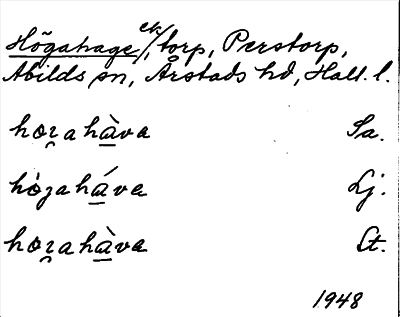 Högahage ek/, torp, Perstorp,
Abilds sn, Årstads hd, Hall. l.
hoɀahàva Sa.
hòɀaháva Lj.
hoɀahàva St.
1948